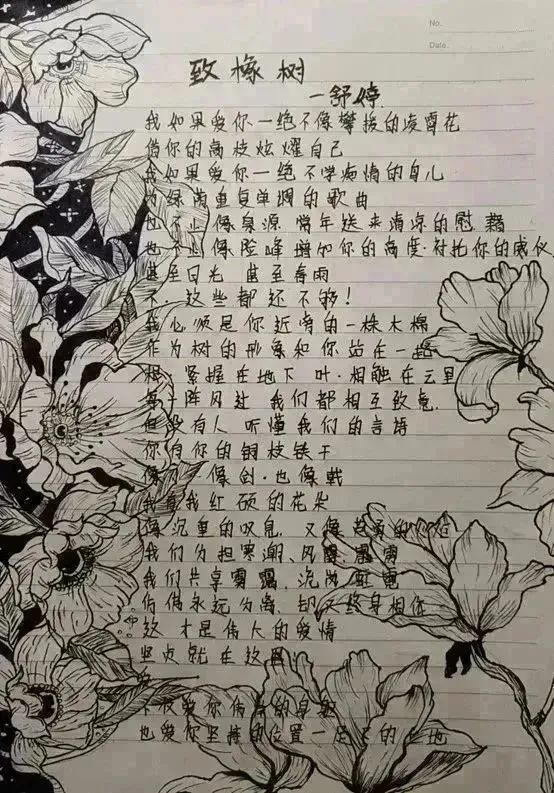 No.
Date.
致橡树
—舒婷
我如果爱你一绝不像攀援的凌霄花
借你的高枝炫耀自己
我如果爱你一绝不学痴情的鸟儿
为绿荫重复单调的歌曲
也不止像泉源 常年送来清凉的慰藉
也不止像险峰增加你的高度·衬托你的威仪
甚至日光 甚至春雨
不·这些都还不够!
我必须是你近旁的一株木棉
作为树的形象和你站在一起
根·紧握在地下 叶·相触在云里
每一阵风过 我们都相互致意
但没有人 听懂我们的言语
你有你的铜枝铁干
像 像剑·也像戟
我有我红硕的花朵
像沉重的叹息 又像英勇的
我们分担寒潮、风雷 霹雳
我们共享雾霭 流岚 虹霓
仿佛永远分离 却又终身相依
这 才是伟大的爱情
坚贞就在这里
爱你伟 的身
也爱你坚持的位置 足下的土地